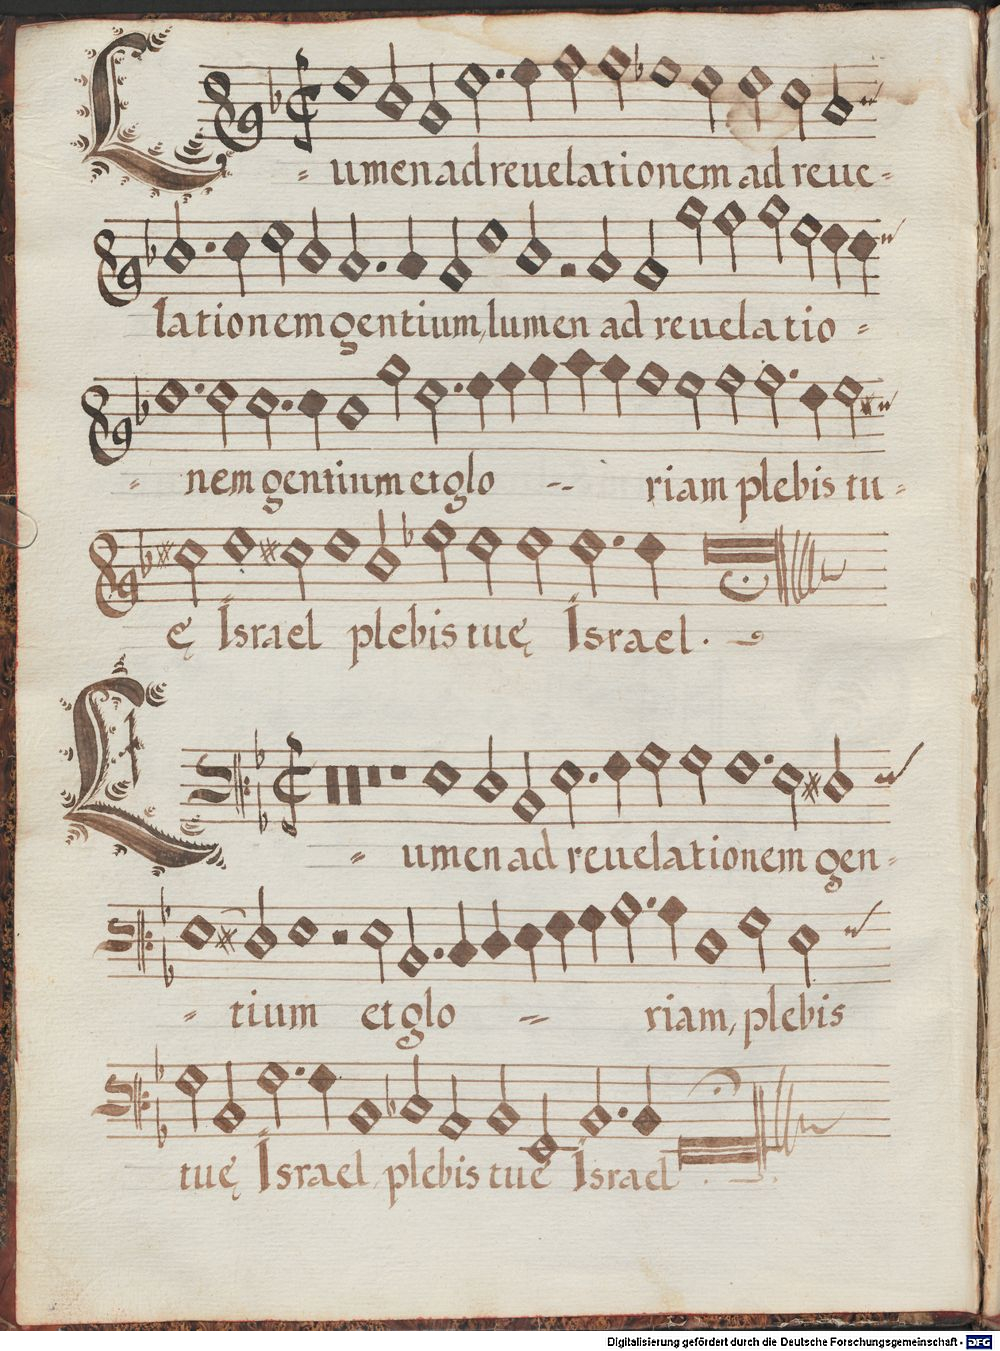 Lumen ad reuelationem ad reue-
lationem gentium, lumen ad reuelatio-
nem gentium et glo -- riam plebis tu-
ę Israel plebis tuę Israel.
Lumen ad reuelationem gen-
tium et glo - riam, plebis
tuę Israel, plebis tuę Israel.
Digitalisierung gefördert durch die Deutsche Forschungsgemeinschaft - DFG